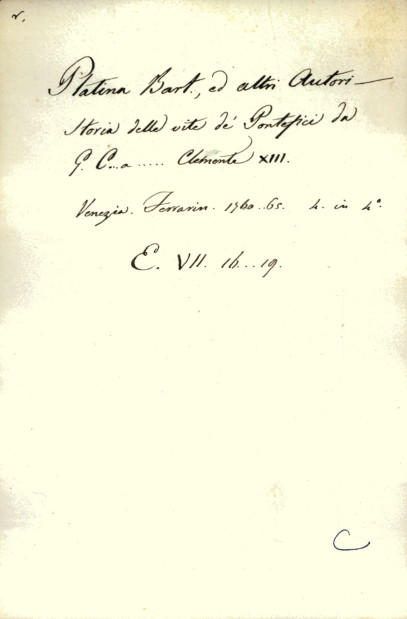 r.
Platina Bart., ed altri Autori —
Storia delle vite de' Pontefici da
G. C... a ..... Clemente XIII.
Venezia. Ferrarin. 1760..65. 4. in 4°.
E. VII. 16...19.
C